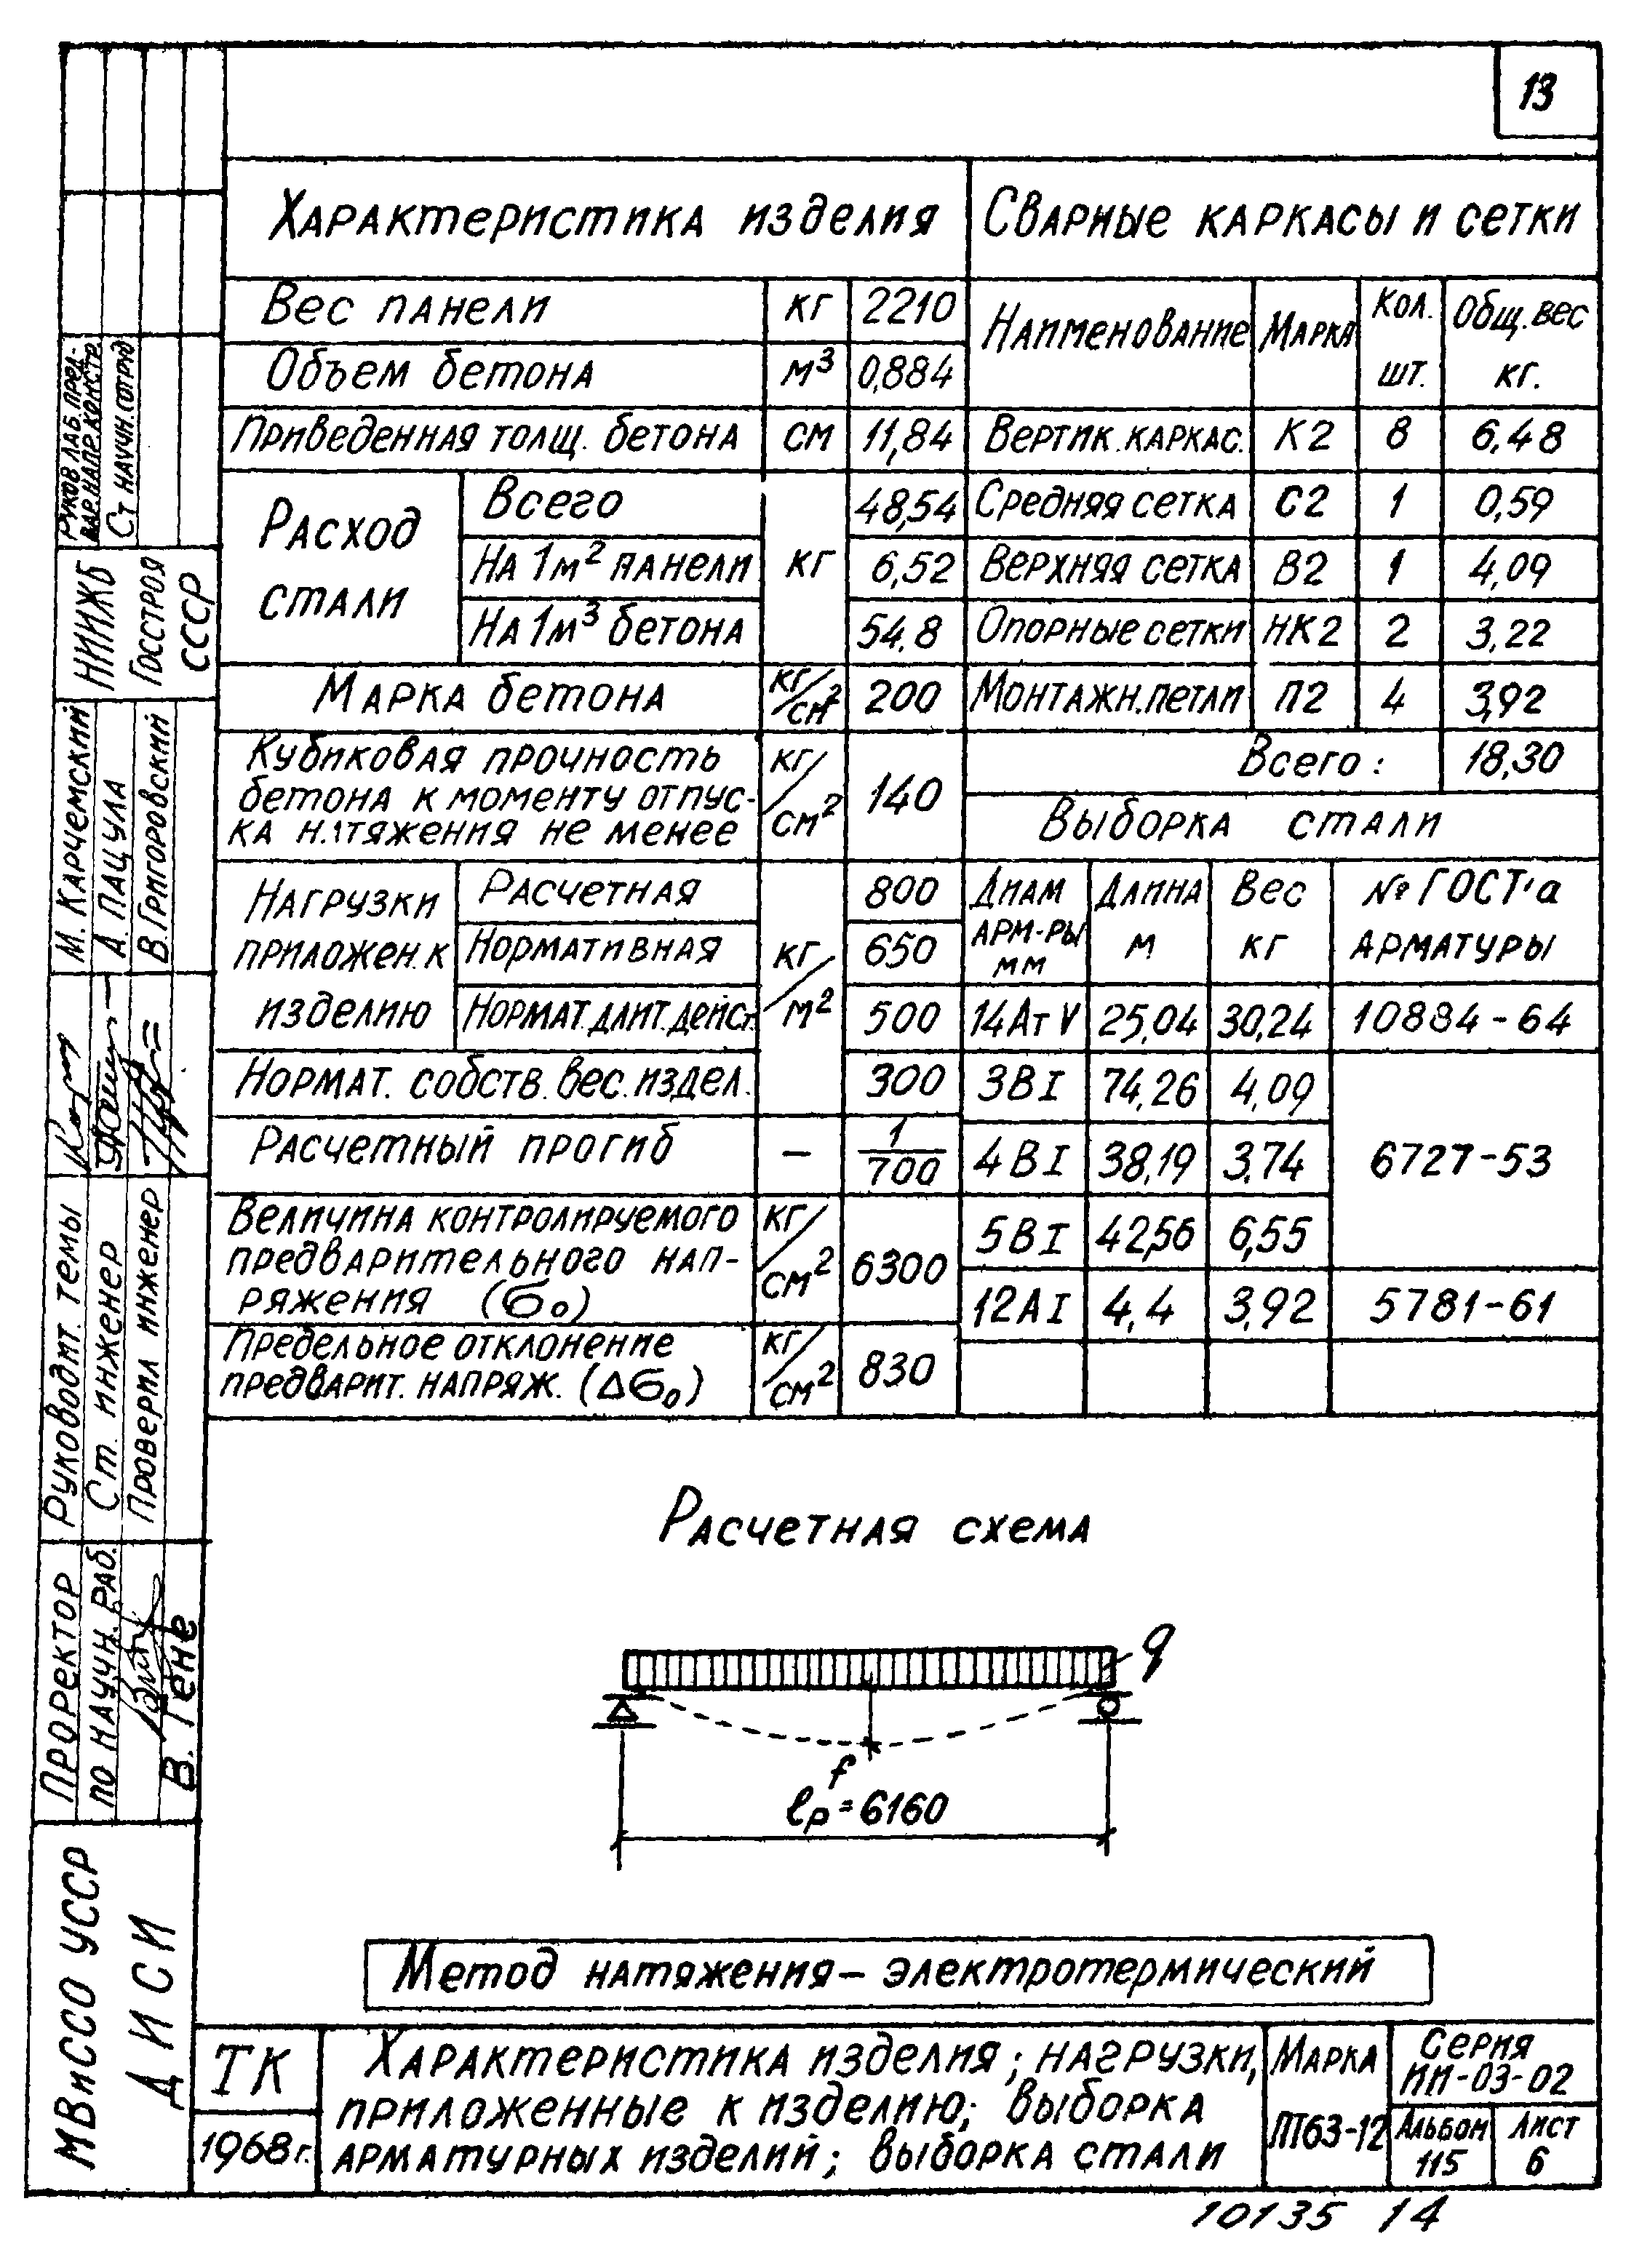 13
Характеристика изделия
Сварные каркасы и сетки
Вес панели кг 2210
Объем бетона м³ 0,884
Приведенная толщ. бетона см 11,84
Расход стали кг
Всего 48,54
На 1м² панели 6,52
На 1м³ бетона 54,8
Марка бетона кг/см² 200
Кубиковая прочность
бетона к моменту отпус-
ка натяжения не менее кг/см² 140
Нагрузки
приложен. к
изделию кг/м²
Расчетная 800
Нормативная 650
Нормат. длит. дейст. 500
Нормат. собств. вес. издел. 300
Расчетный прогиб – 1/700
Величина контролируемого
предварительного нап-
ряжения (σ₀) кг/см² 6300
Предельное отклонение
предварит. напряж. (Δσ₀) кг/см² 830
Наименование Марка Кол. шт. Общ. вес кг.
Вертик. каркас. К2 8 6,48
Средняя сетка С2 1 0,59
Верхняя сетка В2 1 4,09
Опорные сетки НК2 2 3,22
Монтажн. петли П2 4 3,92
Всего: 18,30
Выборка стали
Диам арм-ры мм Длина м Вес кг № ГОСТ'а арматуры
14АтV 25,04 30,24 10884-64
3ВI 74,26 4,09
4ВI 38,19 3,74 6727-53
5ВI 42,56 6,55
12АI 4,4 3,92 5781-61
Расчетная схема
q
f
ℓр=6160
Метод натяжения – электротермический
ТК
1968г.
Характеристика изделия; нагрузки,
приложенные к изделию; выборка
арматурных изделий; выборка стали
Марка
ПТ63-12
Серия
ИИ-03-02
Альбом
115
Лист
6
10135 14
Руков. лаб. пред-
вар. напр. констр.
Ст научн. сотруд
НИИЖБ
Госстроя
СССР
М. Карчемский
А. Пацула
В. Григоровский
Руководит. темы
Ст. инженер
Проверил инженер
Проректор
по научн. раб.
В. Гене
МВиССО УССР
ДИСИ